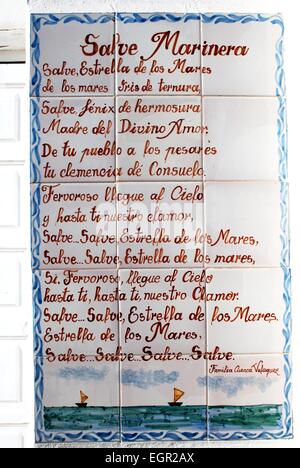 Salve Marinera
Salve, Estrella de los Mares
de los mares Iris de ternura,
Salve Fénix de hermosura
Madre del Divino Amor.
De tu pueblo a los pesares
tu clemencia dé Consuelo.
Fervoroso llegue al Cielo
y hasta ti nuestro clamor,
Salve...Salve, Estrella de los Mares,
Salve...Salve, Estrella de los mares.
Si, Fervoroso, llegue al Cielo
hasta ti, hasta ti, nuestro Clamor.
Salve...Salve, Estrella de los Mares.
Estrella de los Mares.
Salve...Salve...Salve...Salve.
Familia Cuenca Velazquez
alamy
alamy
Image ID: EGR2AX
www.alamy.com